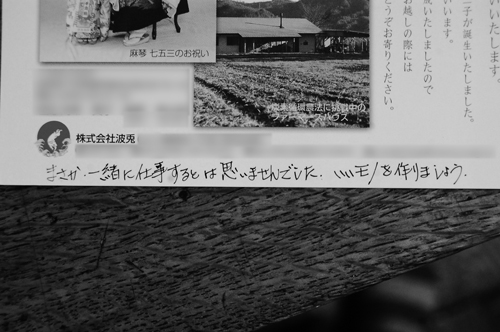 います。
二子が誕生いたしました。
います。
成いたしましたので
お越しの際には
どうぞお寄りください。
麻琴 七五三のお祝い
炭素循環農法に挑戦中の
ファーマーズハウス
株式会社波兎
まさか、一緒に仕事するとは思いませんでした。いいモノを作りましょう。